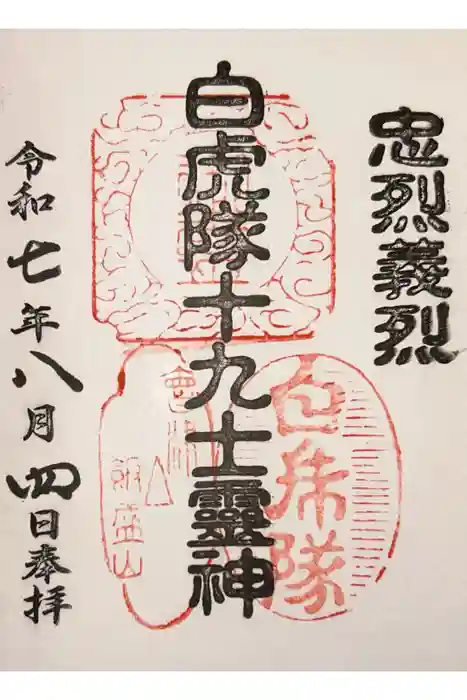 忠烈義烈
白虎隊十九士靈神
令和七年八月四日奉拝
白虎隊
會津
飯盛山